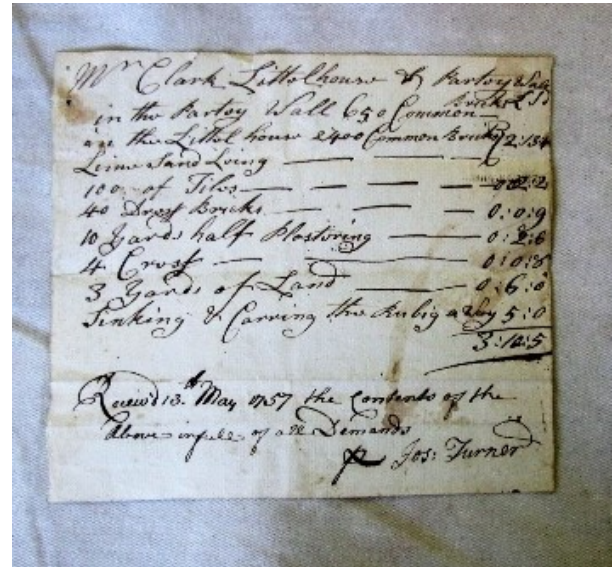 Mr Clark Littolhouse & Partoy Wall
in the Partoy Wall 650 Common Bricks
in the Littol house 2400 Common Bricks 2:13:
Leime Sand Loing
100 of Tiles — 2:2
40 Drest Bricks — 0:0:9
10 Yards half Plostoring — 0:2:6
4 Crost — 0:0:8
3 Yards of Land — 0:6:0
Sinking & Carring the Rubig away 5:0
3:10:5
Receivd 13th May 1757 the Contents of the
Above in full of all Demands
Jos: Turner